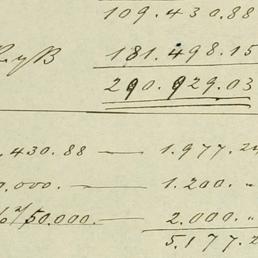 109.430.88
R y B 181.498.15
290.929.03
.430.88 — 1.977.2
0.000. — 1.200. "
50.000. — 2.000. "
5.177.2